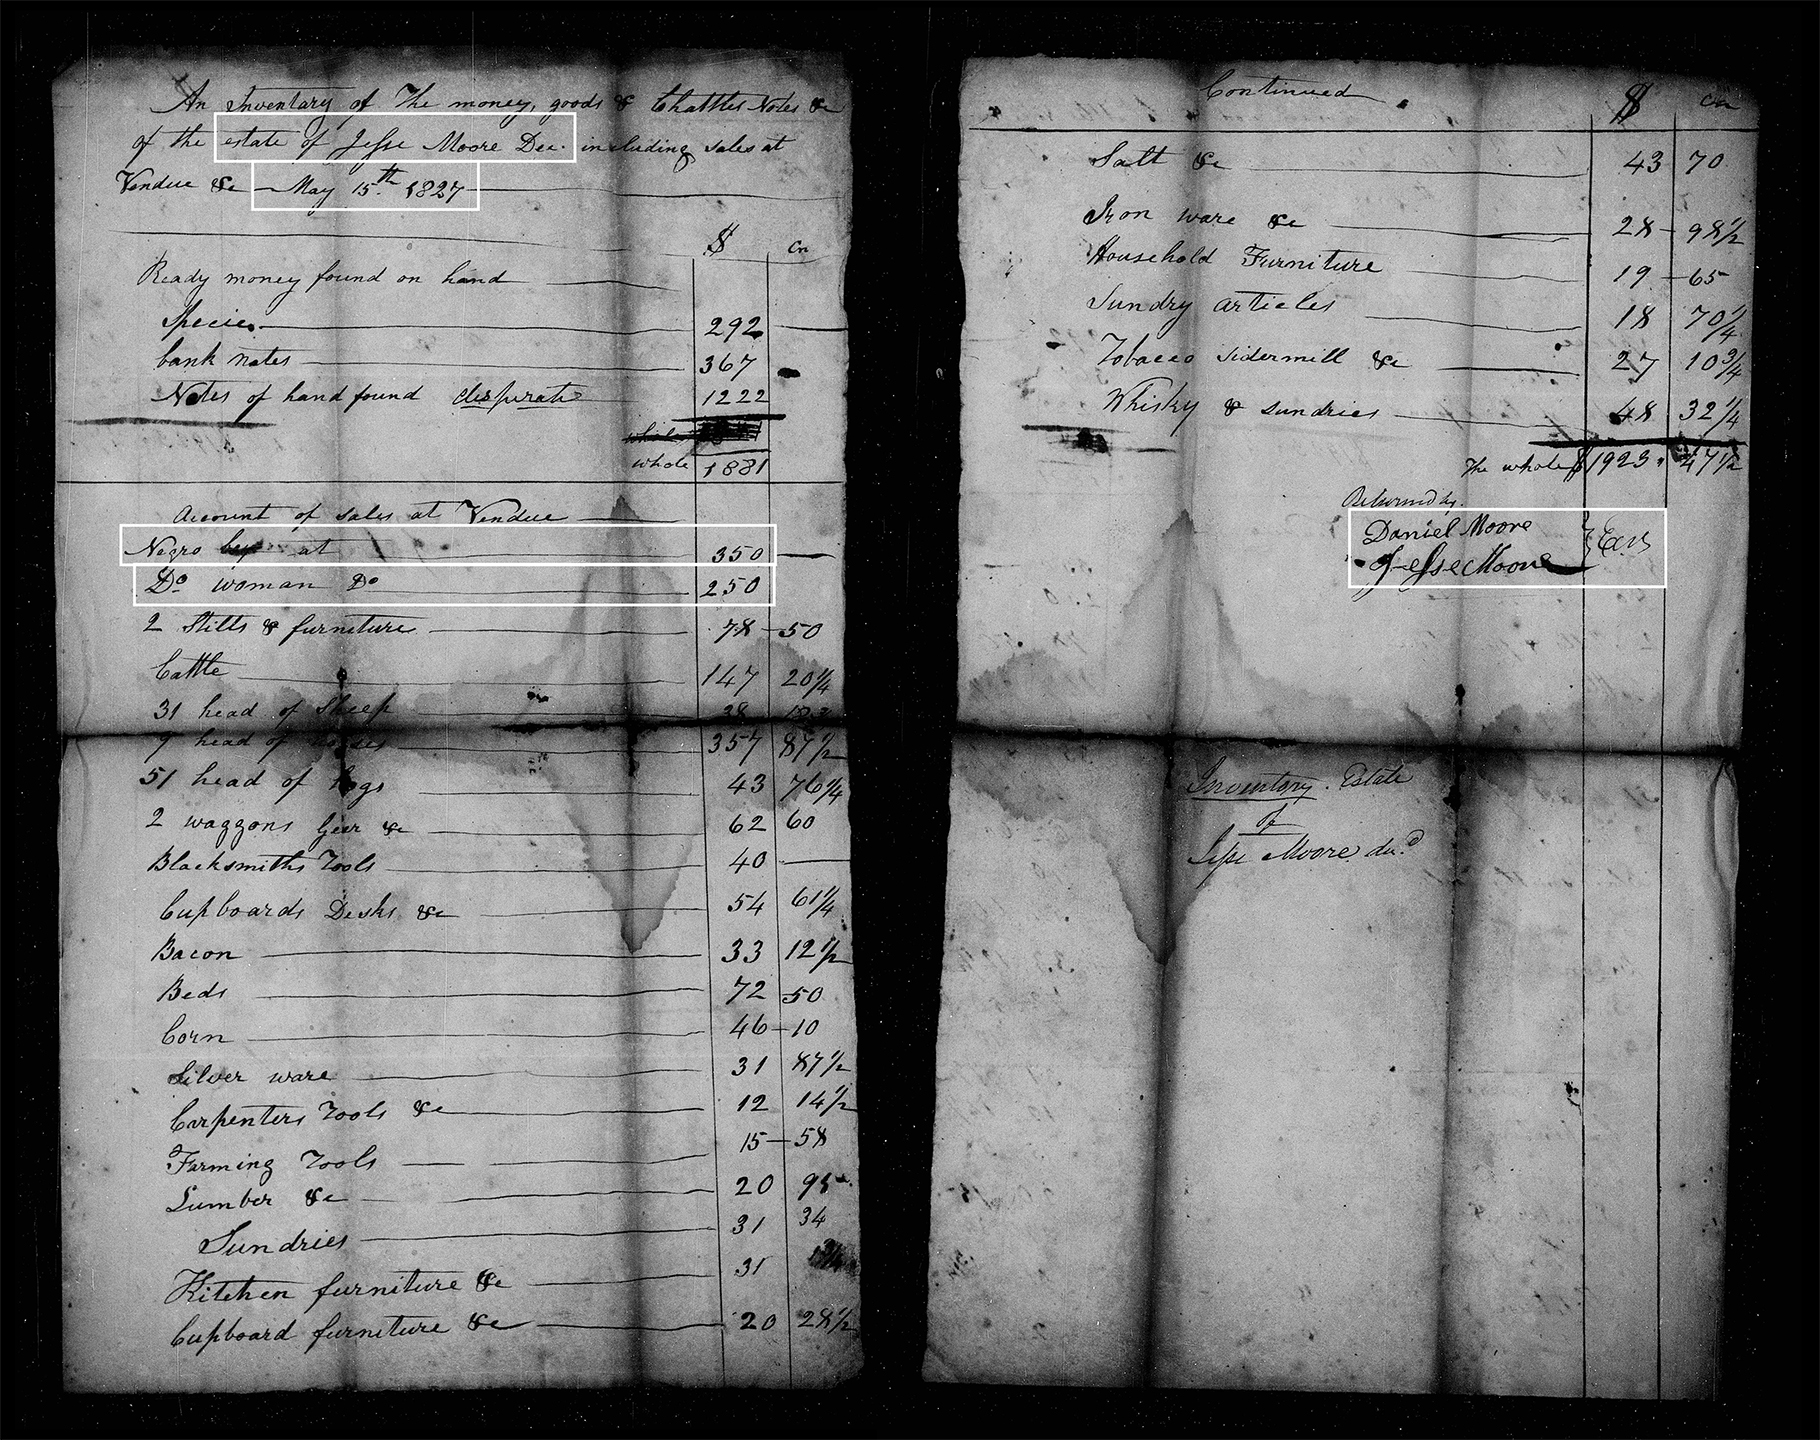 An Inventary of The money, goods & Chattles Notes &c
of the estate of Jesse Moore Dec. including sales at
Vendue &c — May 15th 1827
$ Cn
Ready money found on hand
Specie 292
bank notes 367
Notes of hand found desperate 1222
whole 1881
Account of sales at Vendue
Negro boy at 350
Do woman Do 250
2 Stills & furniture 78 50
Cattle 147 20 1/4
31 head of Sheep 28
9 head of horses 357 87 1/2
51 head of hogs 43 76 1/4
2 waggons Gear &c 62 60
Blacksmiths Tools 40
Cupboards Desks &c 54 61 1/4
Bacon 33 12 1/2
Beds 72 50
Corn 46 10
Silver ware 31 87 1/2
Carpenters Tools &c 12 14 1/2
Farming Tools 15 58
Lumber &c 20 98
Sundries 31 34
Kitchen furniture &c 31
Cupboard furniture &c 20 28 1/2
Continued $ Cn
Salt &c 43 70
Iron ware &c 28 98 1/2
Household Furniture 19 65
Sundry articles 18 70 1/4
Tobacco Sidermill &c 27 10 3/4
Whisky & sundries 48 32 1/4
The whole $ 1923 47 1/2
Returned by
Daniel Moore
Jesse Moore Exrs
Inventory Estate
of
Jesse Moore decd